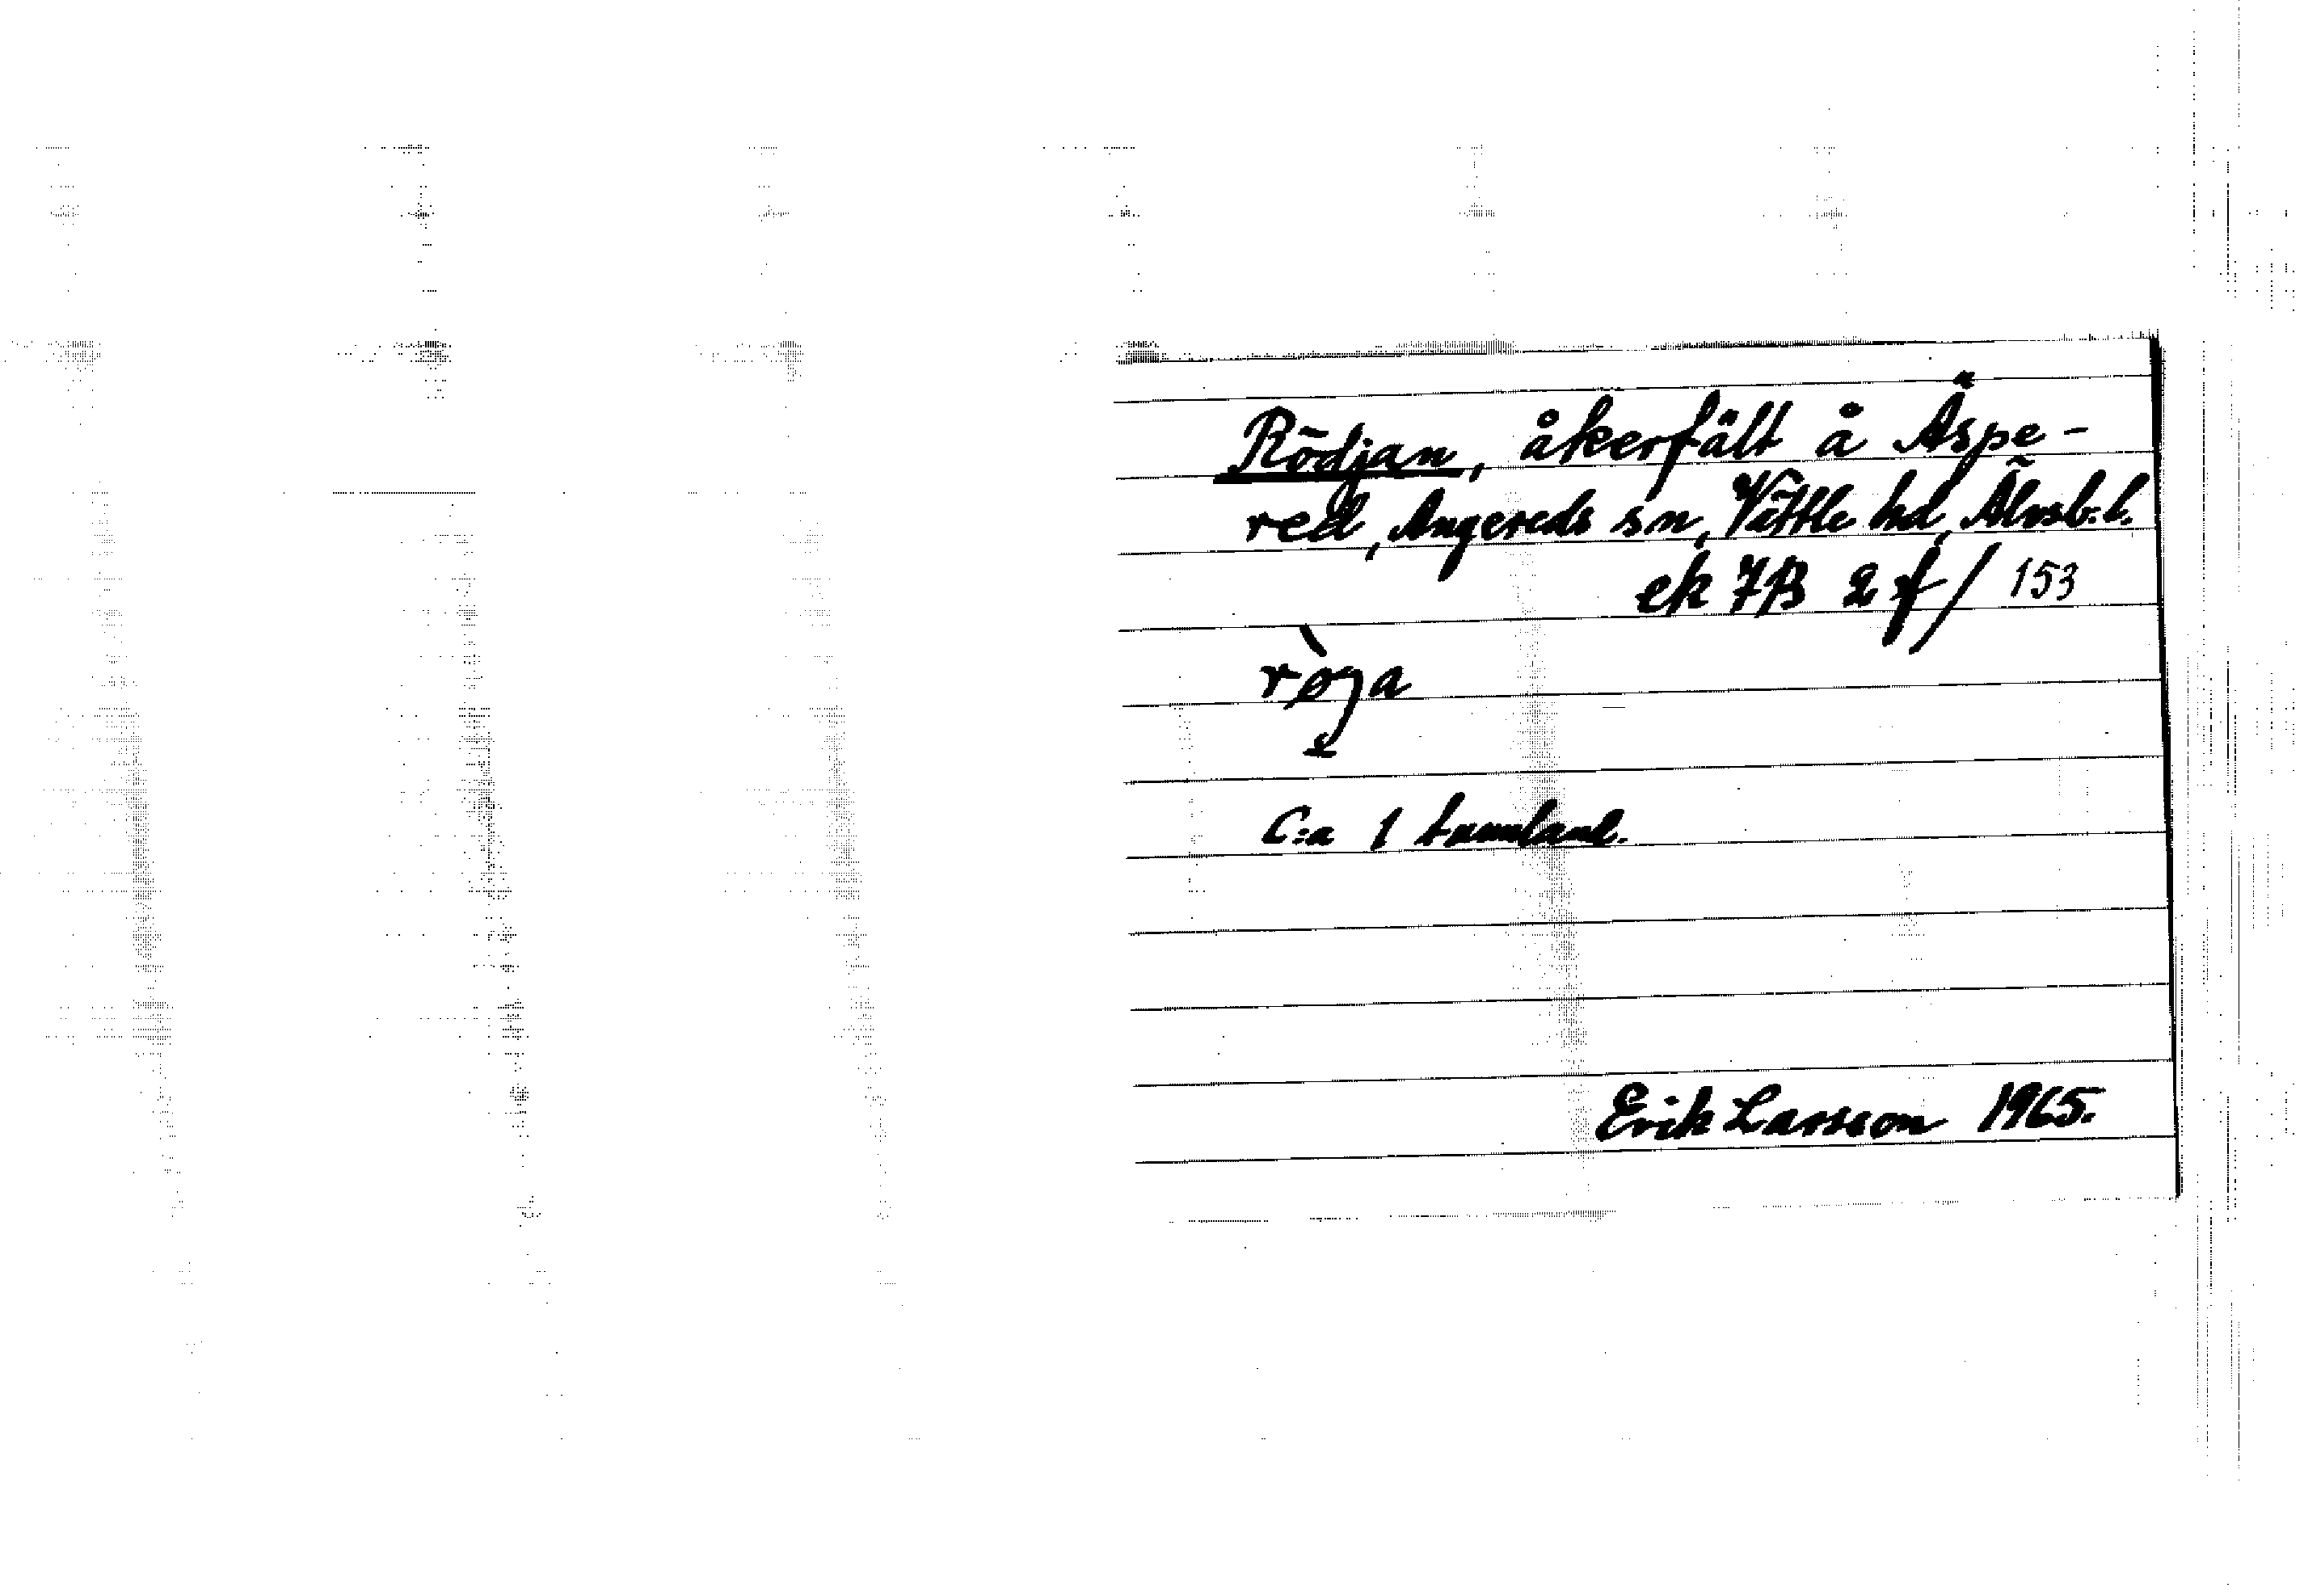 Rödjan, åkerfält å Äspe-
red, Angereds sn, Vättle hd, Älvsb. l.
ek 7B 2 f / 153
rø̀ja
C:a 1 tunnland.
Erik Larsson 1965.